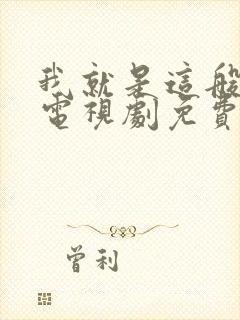 我就是這般
電視劇免費
曾利